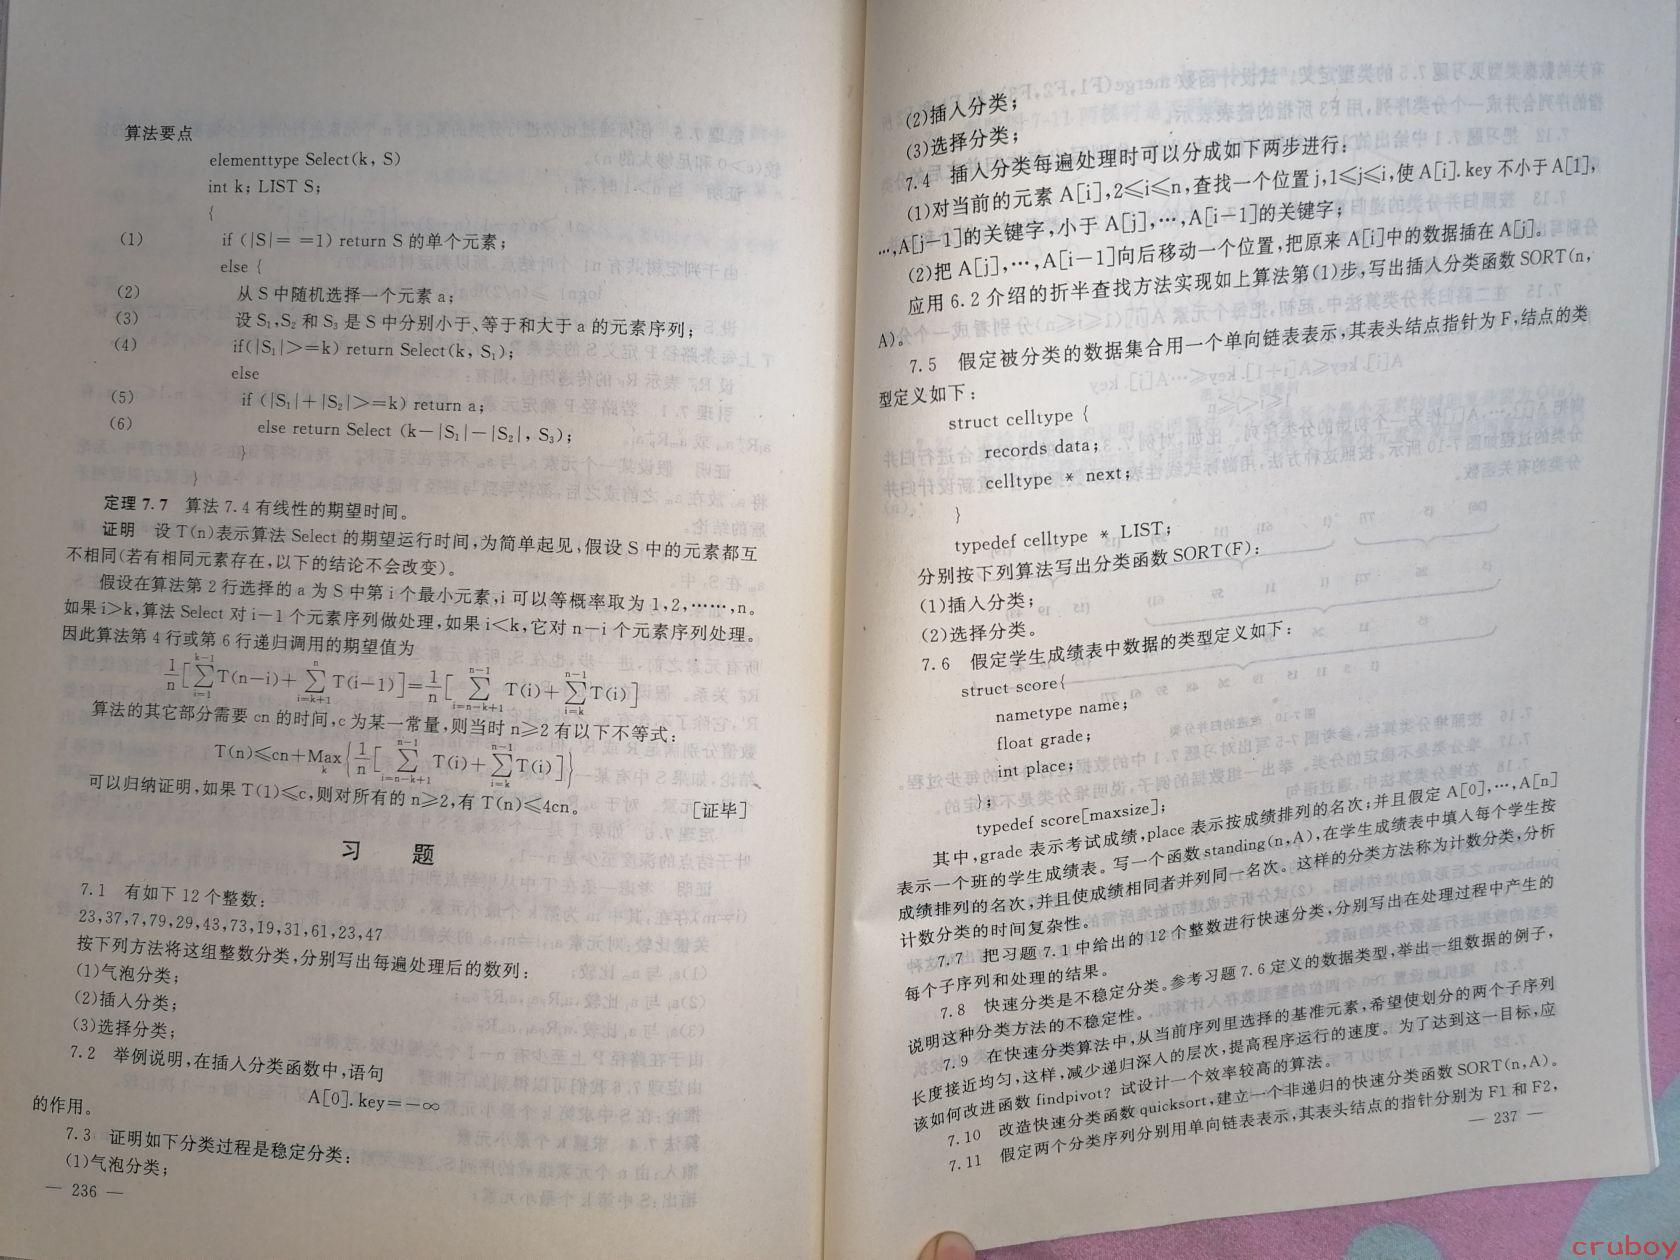 算法要点
elementtype Select(k, S)
int k; LIST S;
{
(1) if (|S|= =1) return S 的单个元素;
else {
(2) 从 S 中随机选择一个元素 a;
(3) 设 S₁,S₂ 和 S₃ 是 S 中分别小于、等于和大于 a 的元素序列;
(4) if(|S₁|>=k) return Select(k, S₁);
else
(5) if (|S₁|+|S₂|>=k) return a;
(6) else return Select (k-|S₁|-|S₂|, S₃);
}
}
定理 7.7 算法 7.4 有线性的期望时间。
证明 设 T(n)表示算法 Select 的期望运行时间,为简单起见,假设 S 中的元素都互
不相同(若有相同元素存在,以下的结论不会改变)。
假设在算法第 2 行选择的 a 为 S 中第 i 个最小元素,i 可以等概率取为 1,2,……,n。
如果 i>k,算法 Select 对 i-1 个元素序列做处理,如果 i<k,它对 n-i 个元素序列处理。
因此算法第 4 行或第 6 行递归调用的期望值为
1/n[∑_{i=1}^{k-1} T(n-i)+∑_{i=k+1}^{n} T(i-1)]=1/n[∑_{i=n-k+1}^{n-1} T(i)+∑_{i=k}^{n-1} T(i)]
算法的其它部分需要 cn 的时间,c 为某一常量,则当时 n≥2 有以下不等式:
T(n)≤cn+Max_k{1/n[∑_{i=n-k+1}^{n-1} T(i)+∑_{i=k}^{n-1} T(i)]}
可以归纳证明,如果 T(1)≤c,则对所有的 n≥2,有 T(n)≤4cn。 [证毕]
习 题
7.1 有如下 12 个整数:
23,37,7,79,29,43,73,19,31,61,23,47
按下列方法将这组整数分类,分别写出每遍处理后的数列:
(1)气泡分类;
(2)插入分类;
(3)选择分类;
7.2 举例说明,在插入分类函数中,语句
A[0].key=-∞
的作用。
7.3 证明如下分类过程是稳定分类:
(1)气泡分类;
— 236 —
(2)插入分类;
(3)选择分类;
7.4 插入分类每遍处理时可以分成如下两步进行:
(1)对当前的元素 A[i],2≤i≤n,查找一个位置 j,1≤j≤i,使 A[i].key 不小于 A[1],
…,A[j-1]的关键字,小于 A[j],…,A[i-1]的关键字;
(2)把 A[j],…,A[i-1]向后移动一个位置,把原来 A[i]中的数据插在 A[j]。
应用 6.2 介绍的折半查找方法实现如上算法第(1)步,写出插入分类函数 SORT(n,
A)。
7.5 假定被分类的数据集合用一个单向链表表示,其表头结点指针为 F,结点的类
型定义如下:
struct celltype {
records data;
celltype * next;
}
typedef celltype * LIST;
分别按下列算法写出分类函数 SORT(F):
(1)插入分类;
(2)选择分类。
7.6 假定学生成绩表中数据的类型定义如下:
struct score{
nametype name;
float grade;
int place;
};
typedef score[maxsize];
其中,grade 表示考试成绩,place 表示按成绩排列的名次;并且假定 A[0],…,A[n]
表示一个班的学生成绩表。写一个函数 standing(n,A),在学生成绩表中填入每个学生按
成绩排列的名次,并且使成绩相同者并列同一名次。这样的分类方法称为计数分类,分析
计数分类的时间复杂性。
7.7 把习题 7.1 中给出的 12 个整数进行快速分类,分别写出在处理过程中产生的
每个子序列和处理的结果。
7.8 快速分类是不稳定分类。参考习题 7.6 定义的数据类型,举出一组数据的例子,
说明这种分类方法的不稳定性。
7.9 在快速分类算法中,从当前序列里选择的基准元素,希望使划分的两个子序列
长度接近均匀,这样,减少递归深入的层次,提高程序运行的速度。为了达到这一目标,应
该如何改进函数 findpivot? 试设计一个效率较高的算法。
7.10 改造快速分类函数 quicksort,建立一个非递归的快速分类函数 SORT(n,A)。
7.11 假定两个分类序列分别用单向链表表示,其表头结点的指针分别为 F1 和 F2,
— 237 —
cruboy